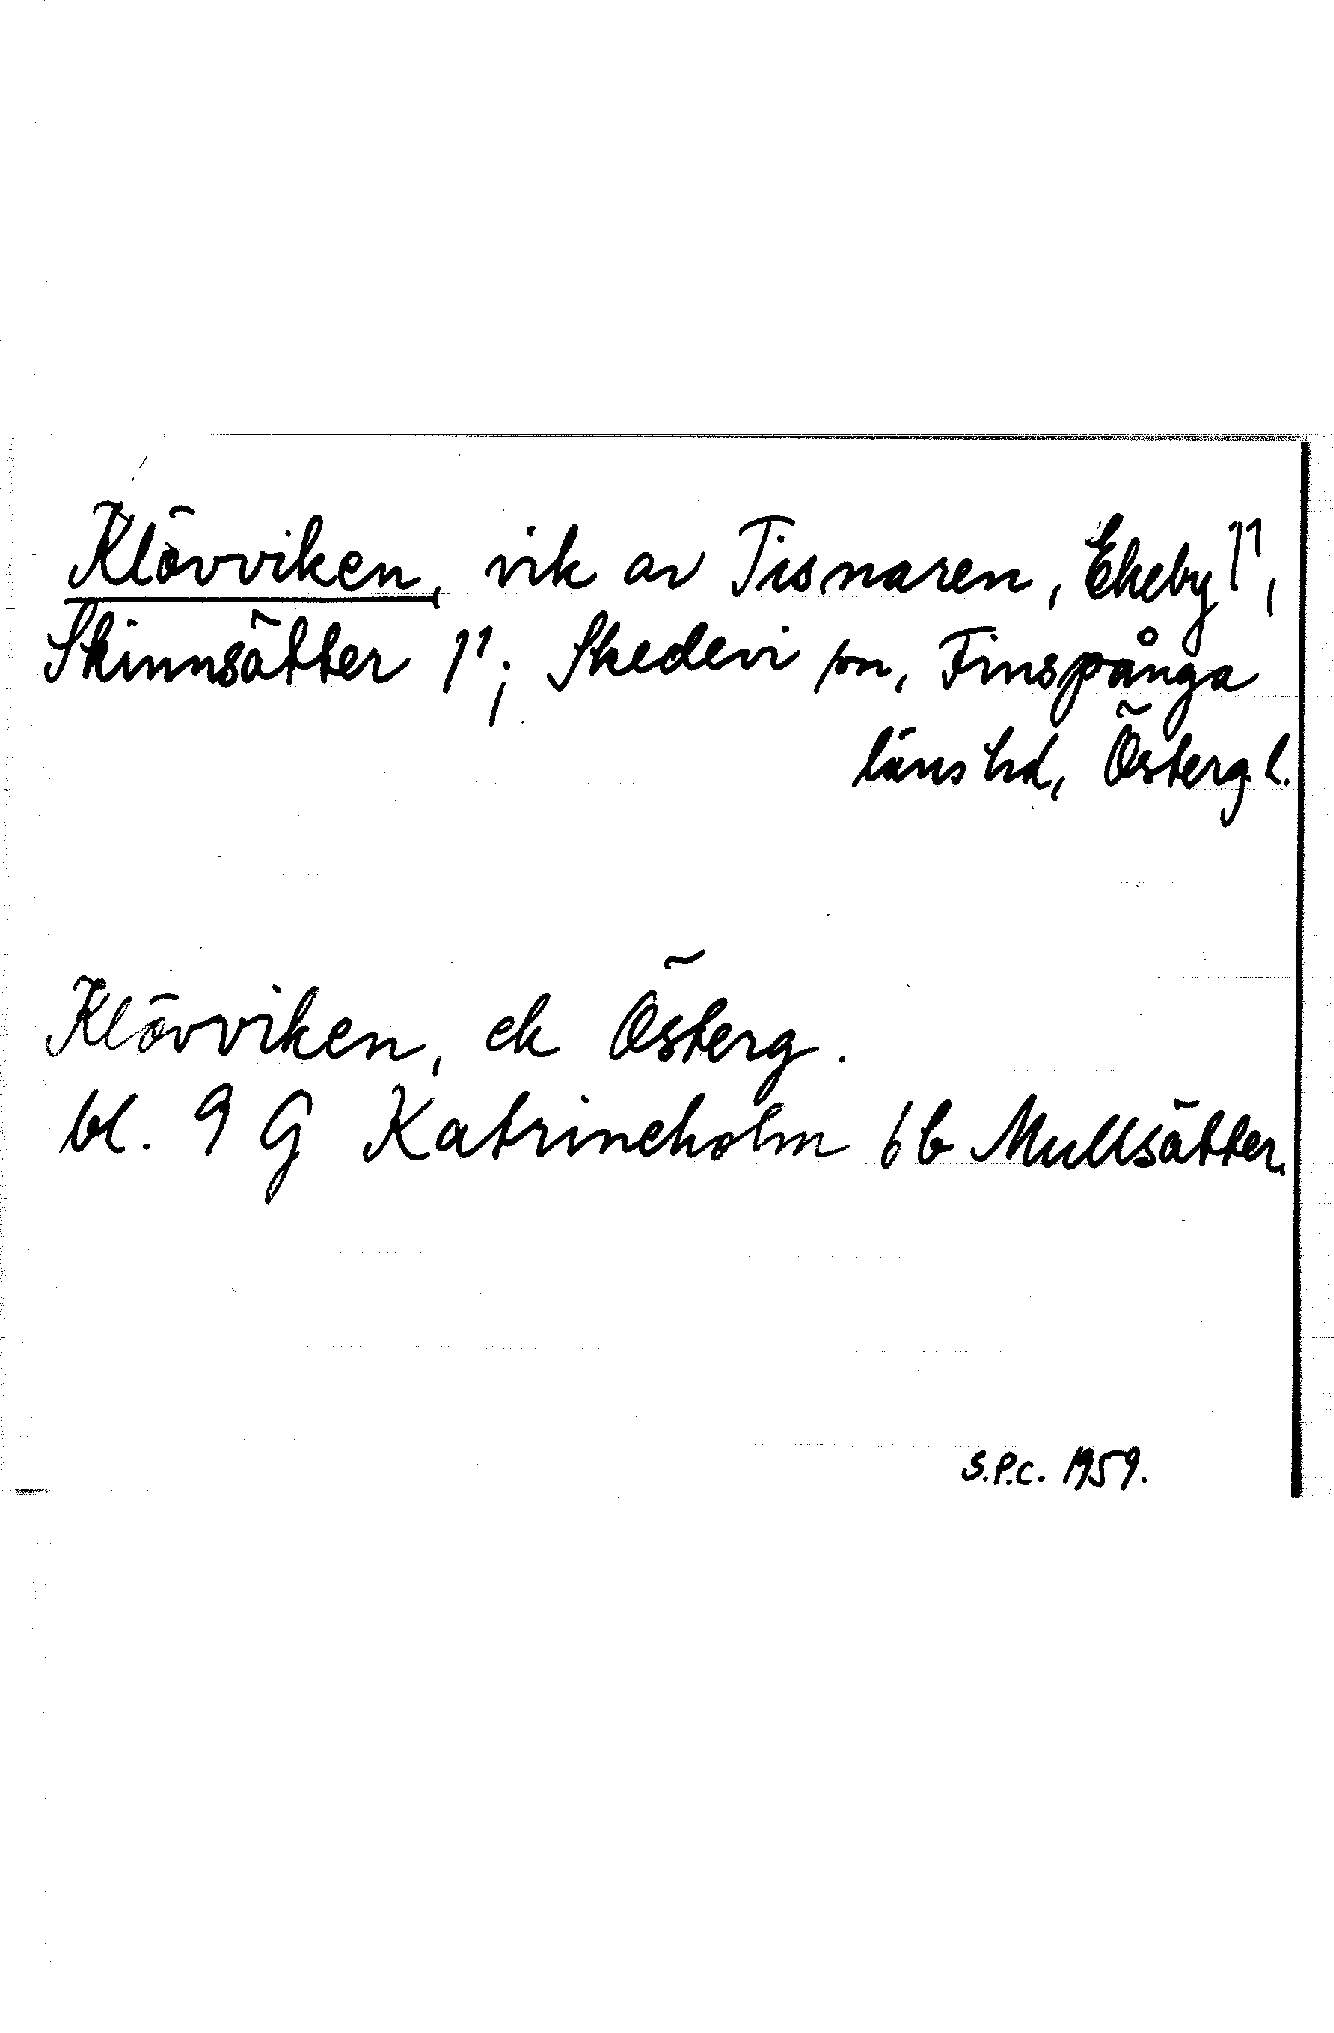 Klövviken, vik av Tisnaren, Ekeby 1¹,
Skinnsätter 1¹; Skedevi sn, Finspånga
läns hd, Österg. l.
Klövviken, ek Österg.
bl. 9 G Katrineholm 6b Mullsätter.
S.P.C. 1959.